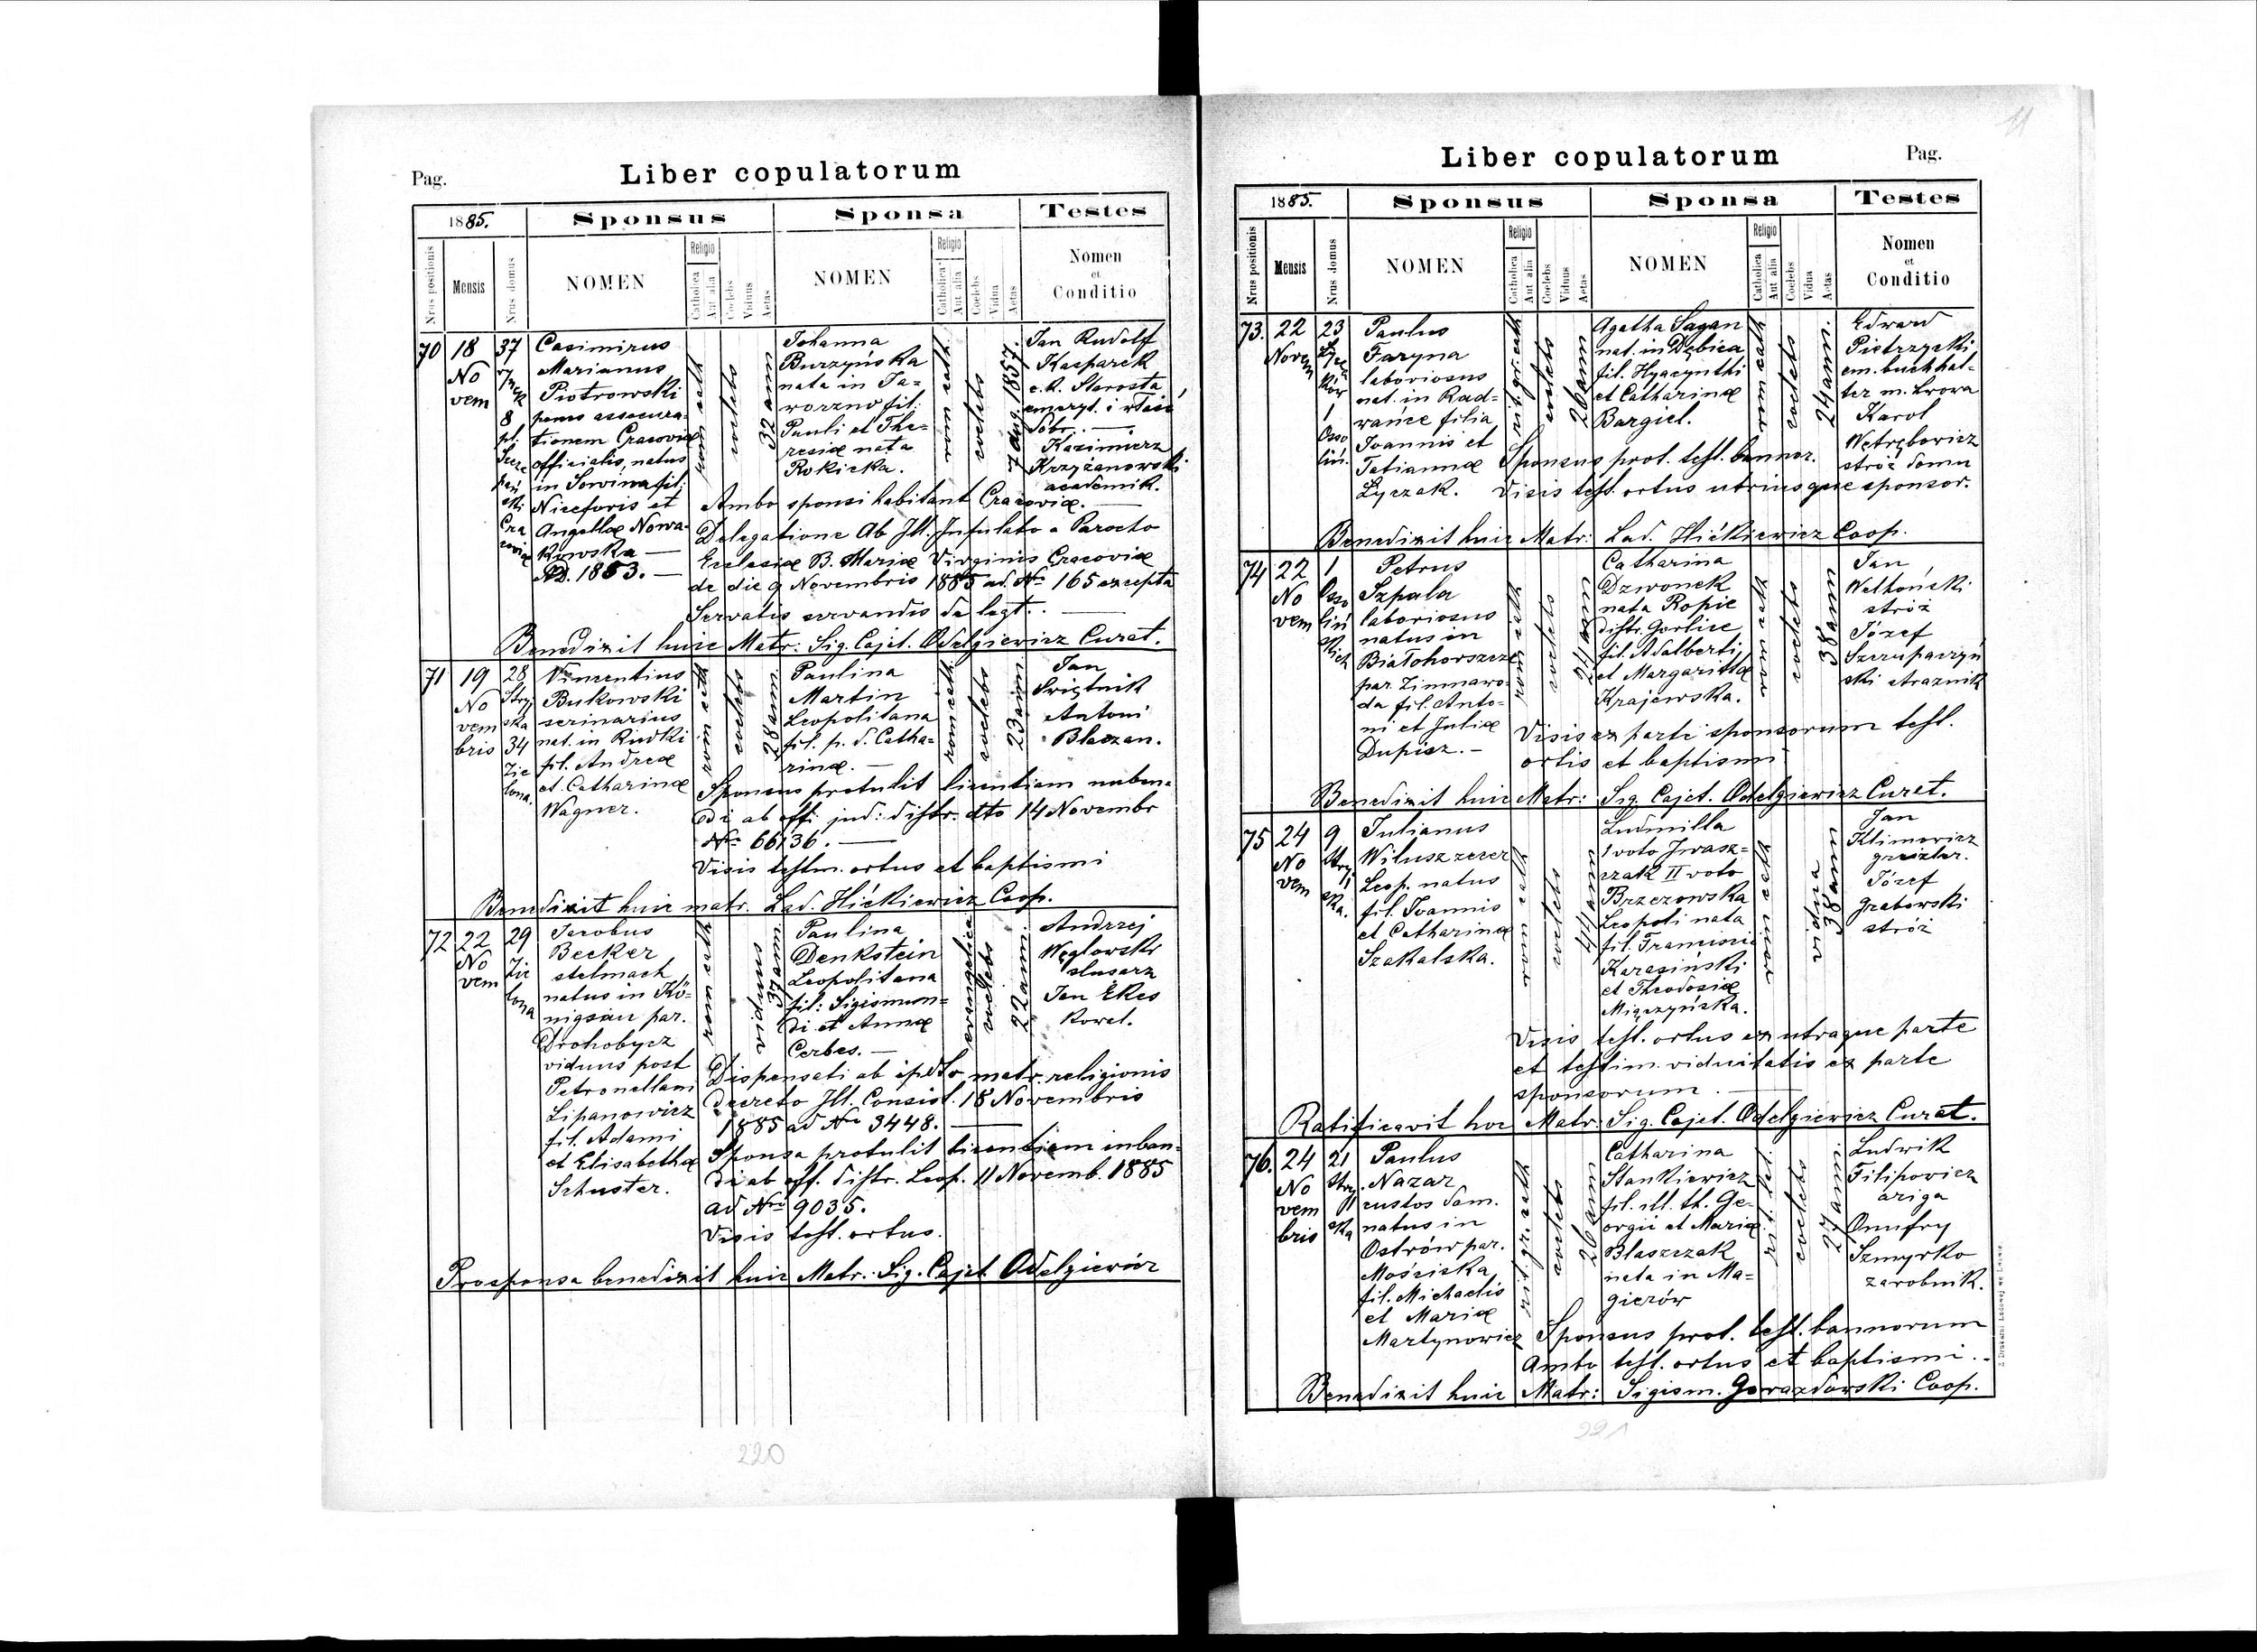 Pag.
Liber copulatorum
1885.
Sponsus
Sponsa
Testes
Nrus positionis
Mensis
Nrus domus
NOMEN
Religio
Catholica
Aut alia
Coelebs
Viduus
Aetas
NOMEN
Religio
Catholica
Aut alia
Coelebs
Vidua
Aetas
Nomen
et
Conditio
70
18
No
vem
37
Rynek
8
pl.
Szcze
pań
ski
Cra
coviæ
Casimirus
Marianus
Piotrowski
penes assecura-
tionem Cracoviæ
officialis, natus
in Sowina fil:
Niceforis et
Angellæ Nowa-
kowska —
AD. 1853. —
rom cath
coelebs
32 ann
Johanna
Burzyńska
nata in Ja-
worzno fil:
Pauli et The-
resiæ nata
Rokicka.
rom cath
coelebs
7 Aug. 1857.
Jan Rudolf
Kasparek
c.k. Starosta
emeryt. i właść
dóbr. —
Kazimierz
Krzyżanowski
academik.
Ambo sponsi habitant Cracoviæ. —
Delegatione Ab Ill. Infulato a Parocho
Eclesiæ B. Mariæ Virginis Cracoviæ
de die 9 Novembris 1885 ad. No 165 excepta
Servatis servandis de legt. —
Benedixit huic Matr: Sig. Cajet. Odelgiewicz Curat.
71
19
No
vem
bris
28
Stryj
ska
34
Zie
lona.
Vincentius
Bukowski
scrinarius
nat. in Rudki
fil. Andreæ
et Catharinæ
Wagner.
rom cath
coelebs
28 ann.
Paulina
Martin
Leopolitana
fil. p. d. Catha-
rinæ. —
rom cath
coelebs
23 ann.
Jan
Świętnik
Antoni
Blaszan.
Sponsus protulit licentiam nuben-
di ab off: jud: distr. dto 14 Novembr
No 66136. —
Visis testm. ortus et baptismi
Benedixit huic matr. Lad. Hićkiewicz Coop.
72
22
No
vem
29
Zie
lona
Jacobus
Becker
stelmach
natus in Kö-
nigsau par.
Drohobycz
viduus post
Petronellam
Lipanowicz
fil. Adami
et Elisabethæ
Schuster.
rom cath
viduus
37 ann.
Paulina
Denkstein
Leopolitana
fil: Sigismun-
di et Annæ
Cerbes. —
evangelica
coelebs
22 ann.
Andrzej
Węglowski
slusarz
Jan Ekes
kowal.
Dispensati ab impdto matr. religionis
decreto Ill. Consist. 18 Novembris
1885 ad No 3448. —
Sponsa protulit licentiam inban-
di ab off. distr. Leop. 11 Novemb. 1885
ad Nro 9035.
Visis test. ortus.
Prosponsa benedixit huic Matr.: Sig. Cajet. Odelgiewicz
220
Liber copulatorum
Pag.
1885.
Sponsus
Sponsa
Testes
Nrus positionis
Mensis
Nrus domus
NOMEN
Religio
Catholica
Aut alia
Coelebs
Viduus
Aetas
NOMEN
Religio
Catholica
Aut alia
Coelebs
Vidua
Aetas
Nomen
et
Conditio
73.
22
Novem
23
Łycza
ków
1
Osso
liń.
Paulus
Faryna
laboriosus
nat. in Rad-
wańce filia
Ioannis et
Tatiannæ
Łyczak.
rit. gr. cath
coelebs
26 ann
Agatha Sagan
nat. in Dębica
fil. Hyacynthi
et Catharinæ
Bargiel.
rom cath
coelebs
24 ann.
Edward
Pietrzycki
em. buchhal-
ter m. Lwowa
Karol
Wętrębowicz
stróż domu
Sponsus prot. test. bannor.
Visis test. ortus utriusque sponsor.
Benedixit huic Matr: Lad. Hićkiewicz Coop.
74
22
No
vem
1
Osso
liń
skich
Petrus
Szpala
laboriosus
natus in
Białohorszcze
par. Zimnawo-
da fil. Anto-
ni et Juliæ
Dupisz. —
rom cath
coelebs
24 ann
Catharina
Dzwonek
nata Ropie
distr. Gorlice
fil. Adalberti
et Margarithæ
Krajewska.
rom cath
coelebs
38 ann
Jan
Welkoński
stróż
Józef
Szczupaczyń
ski straznik
Visis ex parte sponsorum test.
ortis et baptismi
Benedixit huic Matr: Sig. Cajet. Odelgiewicz Curat.
75
24
No
vem
9
Stryj
ska.
Julianus
Wiluszczer
Leop. natus
fil. Ioannis
et Catharinæ
Szakalska.
rom cath
coelebs
44 ann
Ludmilla
I voto Iwasz-
czak II voto
Brzezowska
Leopoli nata
fil. Francisci
Karasiński
et Theodosiæ
Migazyńska.
rom cath
vidua
38 ann
Jan
Klimowicz
greizler.
Józef
Grabowski
stróż
Visis test. ortus ex utraque parte
et testim. viduitatis ex parte
sponsorum. —
Ratificavit hoc Matr. Sig. Cajet. Odelgiewicz Curat.
76.
24
No
vem
bris
21
Stryj
ska
Paulus
Nazar
custos dom.
natus in
Ostrów par.
Mościska
fil. Michaelis
et Mariæ
Martynowicz
rit. gr. cath
coelebs
26 ann
Catharina
Stankiewicz
fil. ill. th. Ge-
orgii et Mariæ
Blaszczak
nata in Ma-
gierów
coelebs
27 ann
Ludwik
Filipowicz
ariga
Onufry
Szmyrko
zarobnik.
Sponsus prot. test. bannorum
Ambo test. ortus et baptismi. —
Benedixit huic Matr: Sigism. Gorazdowski Coop.
Z Drukarni Ludowej we Lwowie
221